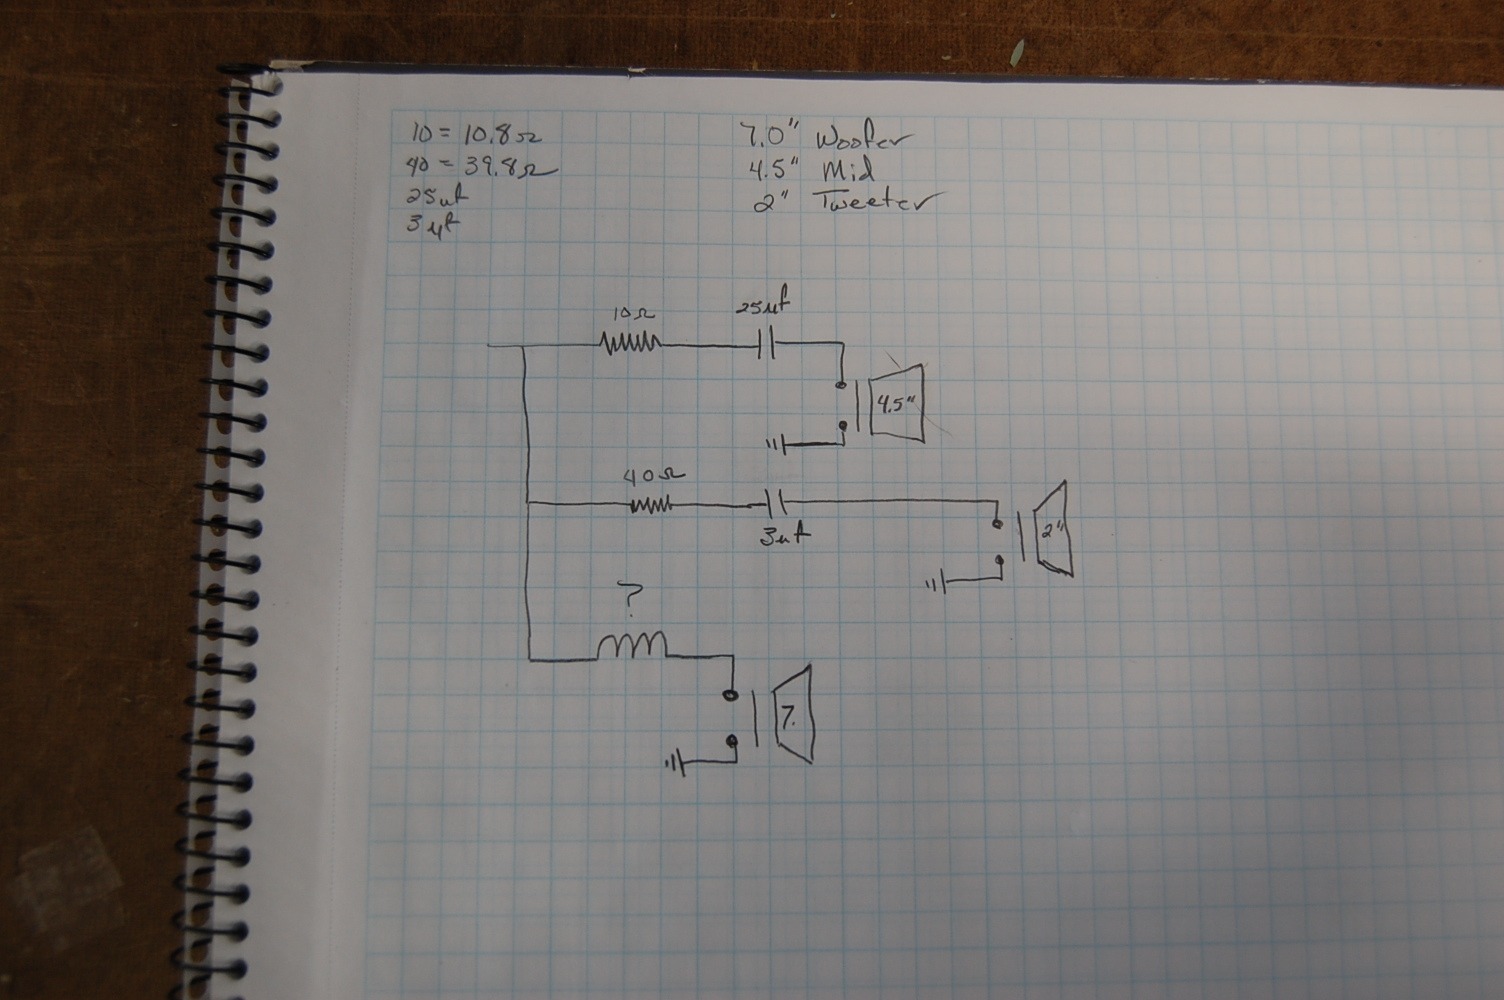 10 = 10.8Ω
40 = 39.8Ω
25uf
3uf
7.0" Woofer
4.5" Mid
2" Tweeter
10Ω
25uf
4.5"
40Ω
3uf
2"
?
7.